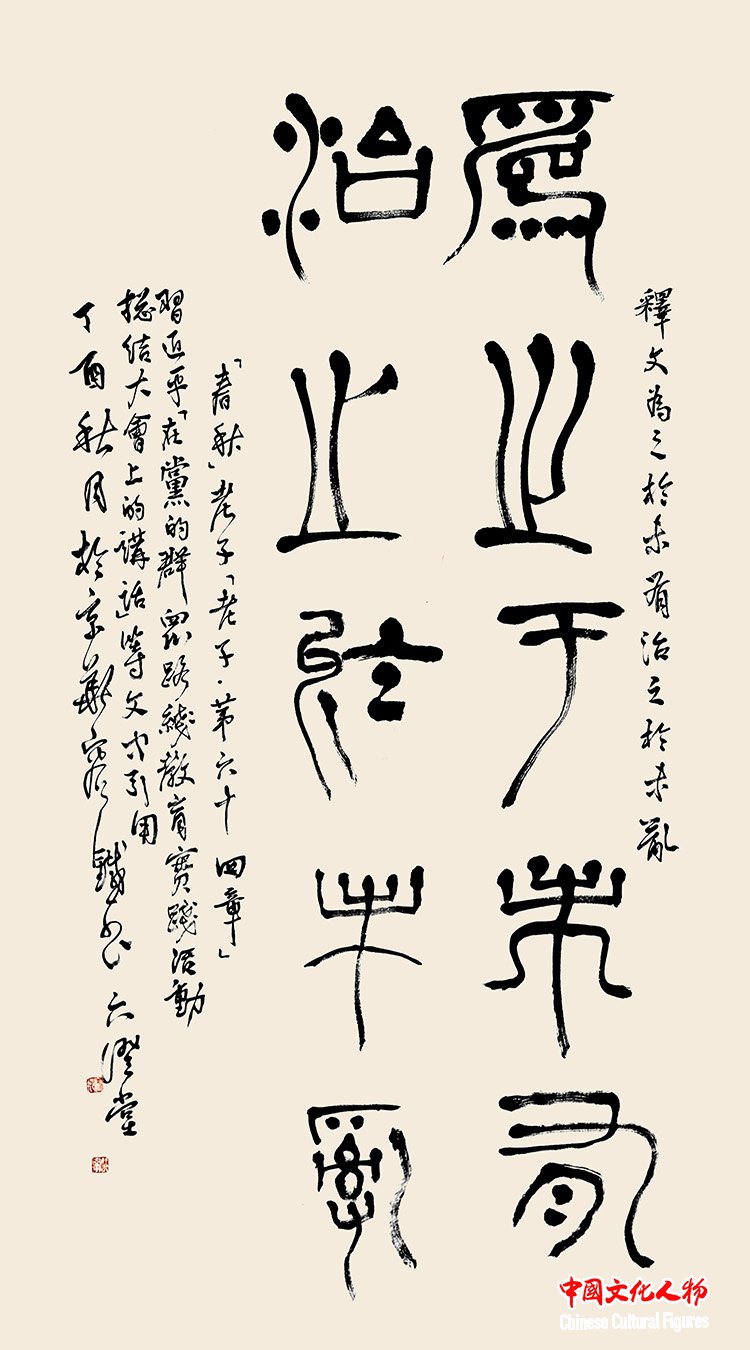 釋文為之於未有治之於未亂
爲之于未有
治之於未亂
「春秋」老子「老子·第六十四章」
習近平「在黨的群眾路綫教育實踐活動
總結大會上的講話」等文中引用
丁酉秋月於京華 六澄堂
中國文化人物
Chinese Cultural Figures